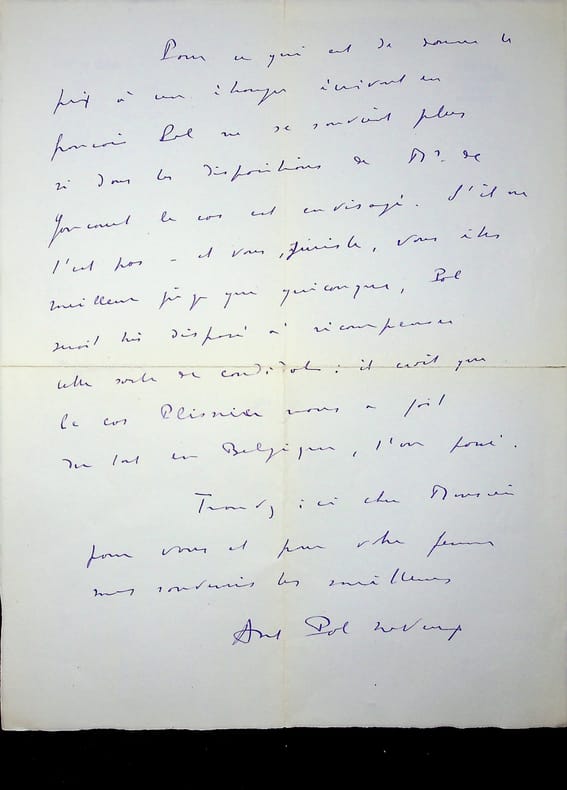 Pour ce qui est de donner le
prix à un étranger écrivant en
français Pol ne se souvient plus
si dans les dispositions de Mr. de
Goncourt le cas est envisagé. S'il ne
l'est pas - et vous, juriste, vous êtes
meilleur juge que quiconque, Pol
serait très disposé à récompenser
cette sorte de candidats : il croit que
le cas Plisnier nous a fait
du tort en Belgique, l'an passé.
Trouvez ici cher Monsieur
pour vous et pour votre femme
mes souvenirs les meilleurs
Pol Neveux